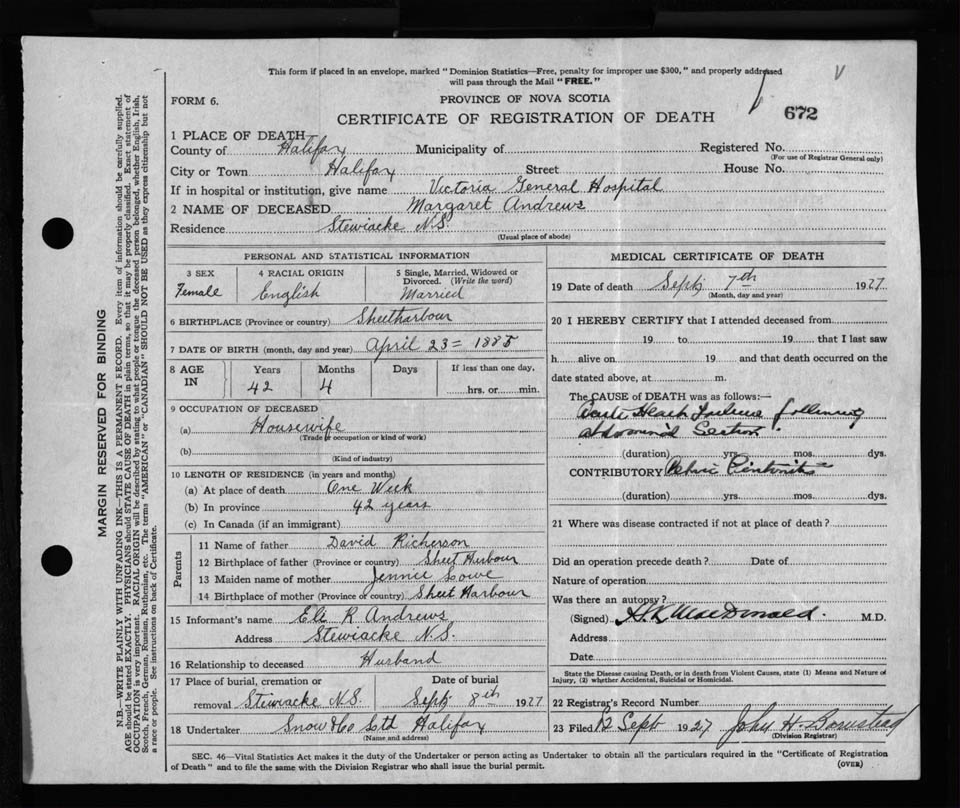 This form if placed in an envelope, marked "Dominion Statistics—Free, penalty for improper use $300," and properly addressed
will pass through the Mail "FREE."
FORM 6.
PROVINCE OF NOVA SCOTIA
672
CERTIFICATE OF REGISTRATION OF DEATH
1 PLACE OF DEATH
County of Halifax Municipality of Registered No.
(For use of Registrar General only)
City or Town Halifax Street House No.
If in hospital or institution, give name Victoria General Hospital
2 NAME OF DECEASED Margaret Andrews
Residence Stewiacke N.S.
(Usual place of abode)
PERSONAL AND STATISTICAL INFORMATION
3 SEX 4 RACIAL ORIGIN 5 Single, Married, Widowed or
Divorced. (Write the word)
Female English Married
6 BIRTHPLACE (Province or country) Sheetharbour
7 DATE OF BIRTH (month, day and year) April 23 = 1885
8 AGE Years Months Days If less than one day,
IN 42 4 hrs. or min.
9 OCCUPATION OF DECEASED
(a) Housewife
(Trade or occupation or kind of work)
(b)
(Kind of industry)
10 LENGTH OF RESIDENCE (in years and months)
(a) At place of death One Week
(b) In province 42 years
(c) In Canada (if an immigrant)
Parents
11 Name of father David Richerson
12 Birthplace of father (Province or country) Sheet Harbour
13 Maiden name of mother Jennie Lowe
14 Birthplace of mother (Province or country) Sheet Harbour
15 Informant's name Eli R Andrews
Address Stewiacke N.S.
16 Relationship to deceased Husband
17 Place of burial, cremation or Date of burial
removal Stewiacke N.S. Sept 8th 1927
18 Undertaker Snow & Co Ltd Halifax
(Name and address)
MEDICAL CERTIFICATE OF DEATH
19 Date of death Sept 7th 1927
(Month, day and year)
20 I HEREBY CERTIFY that I attended deceased from
19 to 19 that I last saw
h alive on 19 and that death occurred on the
date stated above, at m.
The CAUSE of DEATH was as follows:—
Acute Heart Failure following
abdominal Section.
(duration) yrs. mos. dys.
CONTRIBUTORY Pelvic
(duration) yrs. mos. dys.
21 Where was disease contracted if not at place of death?
Did an operation precede death? Date of
Nature of operation
Was there an autopsy?
(Signed) H.K. MacDonald. M.D.
Address
Date
State the Disease causing Death, or in death from Violent Causes, state (1) Means and Nature of
Injury, (2) whether Accidental, Suicidal or Homicidal.
22 Registrar's Record Number
23 Filed 12 Sept 1927 John H.
(Division Registrar)
SEC. 46—Vital Statistics Act makes it the duty of the Undertaker or person acting as Undertaker to obtain all the particulars required in the "Certificate of Registration
of Death" and to file the same with the Division Registrar who shall issue the burial permit.
(OVER)
MARGIN RESERVED FOR BINDING
N.B.—WRITE PLAINLY WITH UNFADING INK—THIS IS A PERMANENT RECORD. Every item of information should be carefully supplied.
AGE should be stated EXACTLY. PHYSICIANS should STATE CAUSE OF DEATH in plain terms, so that it may be properly classified. Exact statement of
OCCUPATION is very important. RACIAL ORIGIN will be described by stating to what people or tongue the deceased person belonged, whether English, Irish,
Scotch, French, German, Russian, Ruthenian, etc. The terms "AMERICAN" or "CANADIAN" SHOULD NOT BE USED as they express citizenship but not
a race or people. See instructions on back of Certificate.